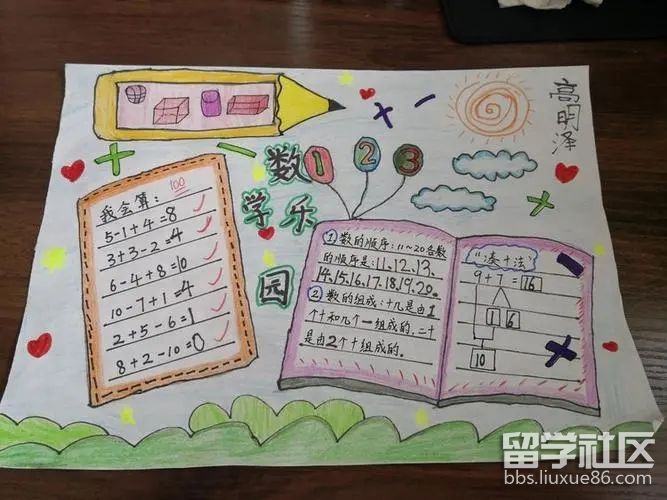 高明泽
数学乐园
1 2 3
我会算：100
5-1+4=8
3+3-2=4
6-4+8=10
10-7+1=4
2+5-6=1
8+2-10=0
①数的顺序：11~20各数
的顺序是：11、12、13、
14、15、16、17、18、19、20。
②数的组成：十几是由1
个十和几个一组成的，二十
是由2个十组成的。
“凑十法”
9+7=16
1 6
10
留学社区
bbs.liuxue86.com